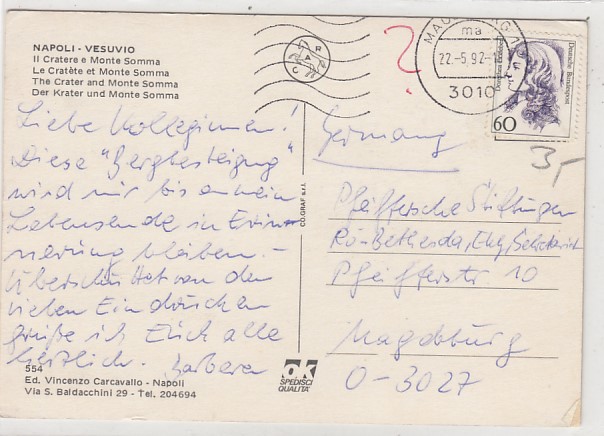 NAPOLI - VESUVIO
Il Cratere e Monte Somma
Le Cratète et Monte Somma
The Crater and Monte Somma
Der Krater und Monte Somma
Liebe Kolleginnen!
Diese "Bergbesteigung"
wird mir bis an mein
Lebensende in Erin-
nerung bleiben. -
Überschüttet von den
vielen Eindrücken
grüße ich Euch alle
herzlich. Barbara
554
Ed. Vincenzo Carcavallo - Napoli
Via S. Baldacchini 29 - Tel. 204694
CO.GRAF s.r.l.
OK
SPEDISCI
QUALITA'
?
MAGDEBURG 1
ma
22.-5.92-
3010
Deutsche Bundespost
60
3,-
Germany
Pfeiffersche Stiftungen
Rö-Bethesda, Sekretariat
Pfeifferstr. 10
Magdeburg
O-3027